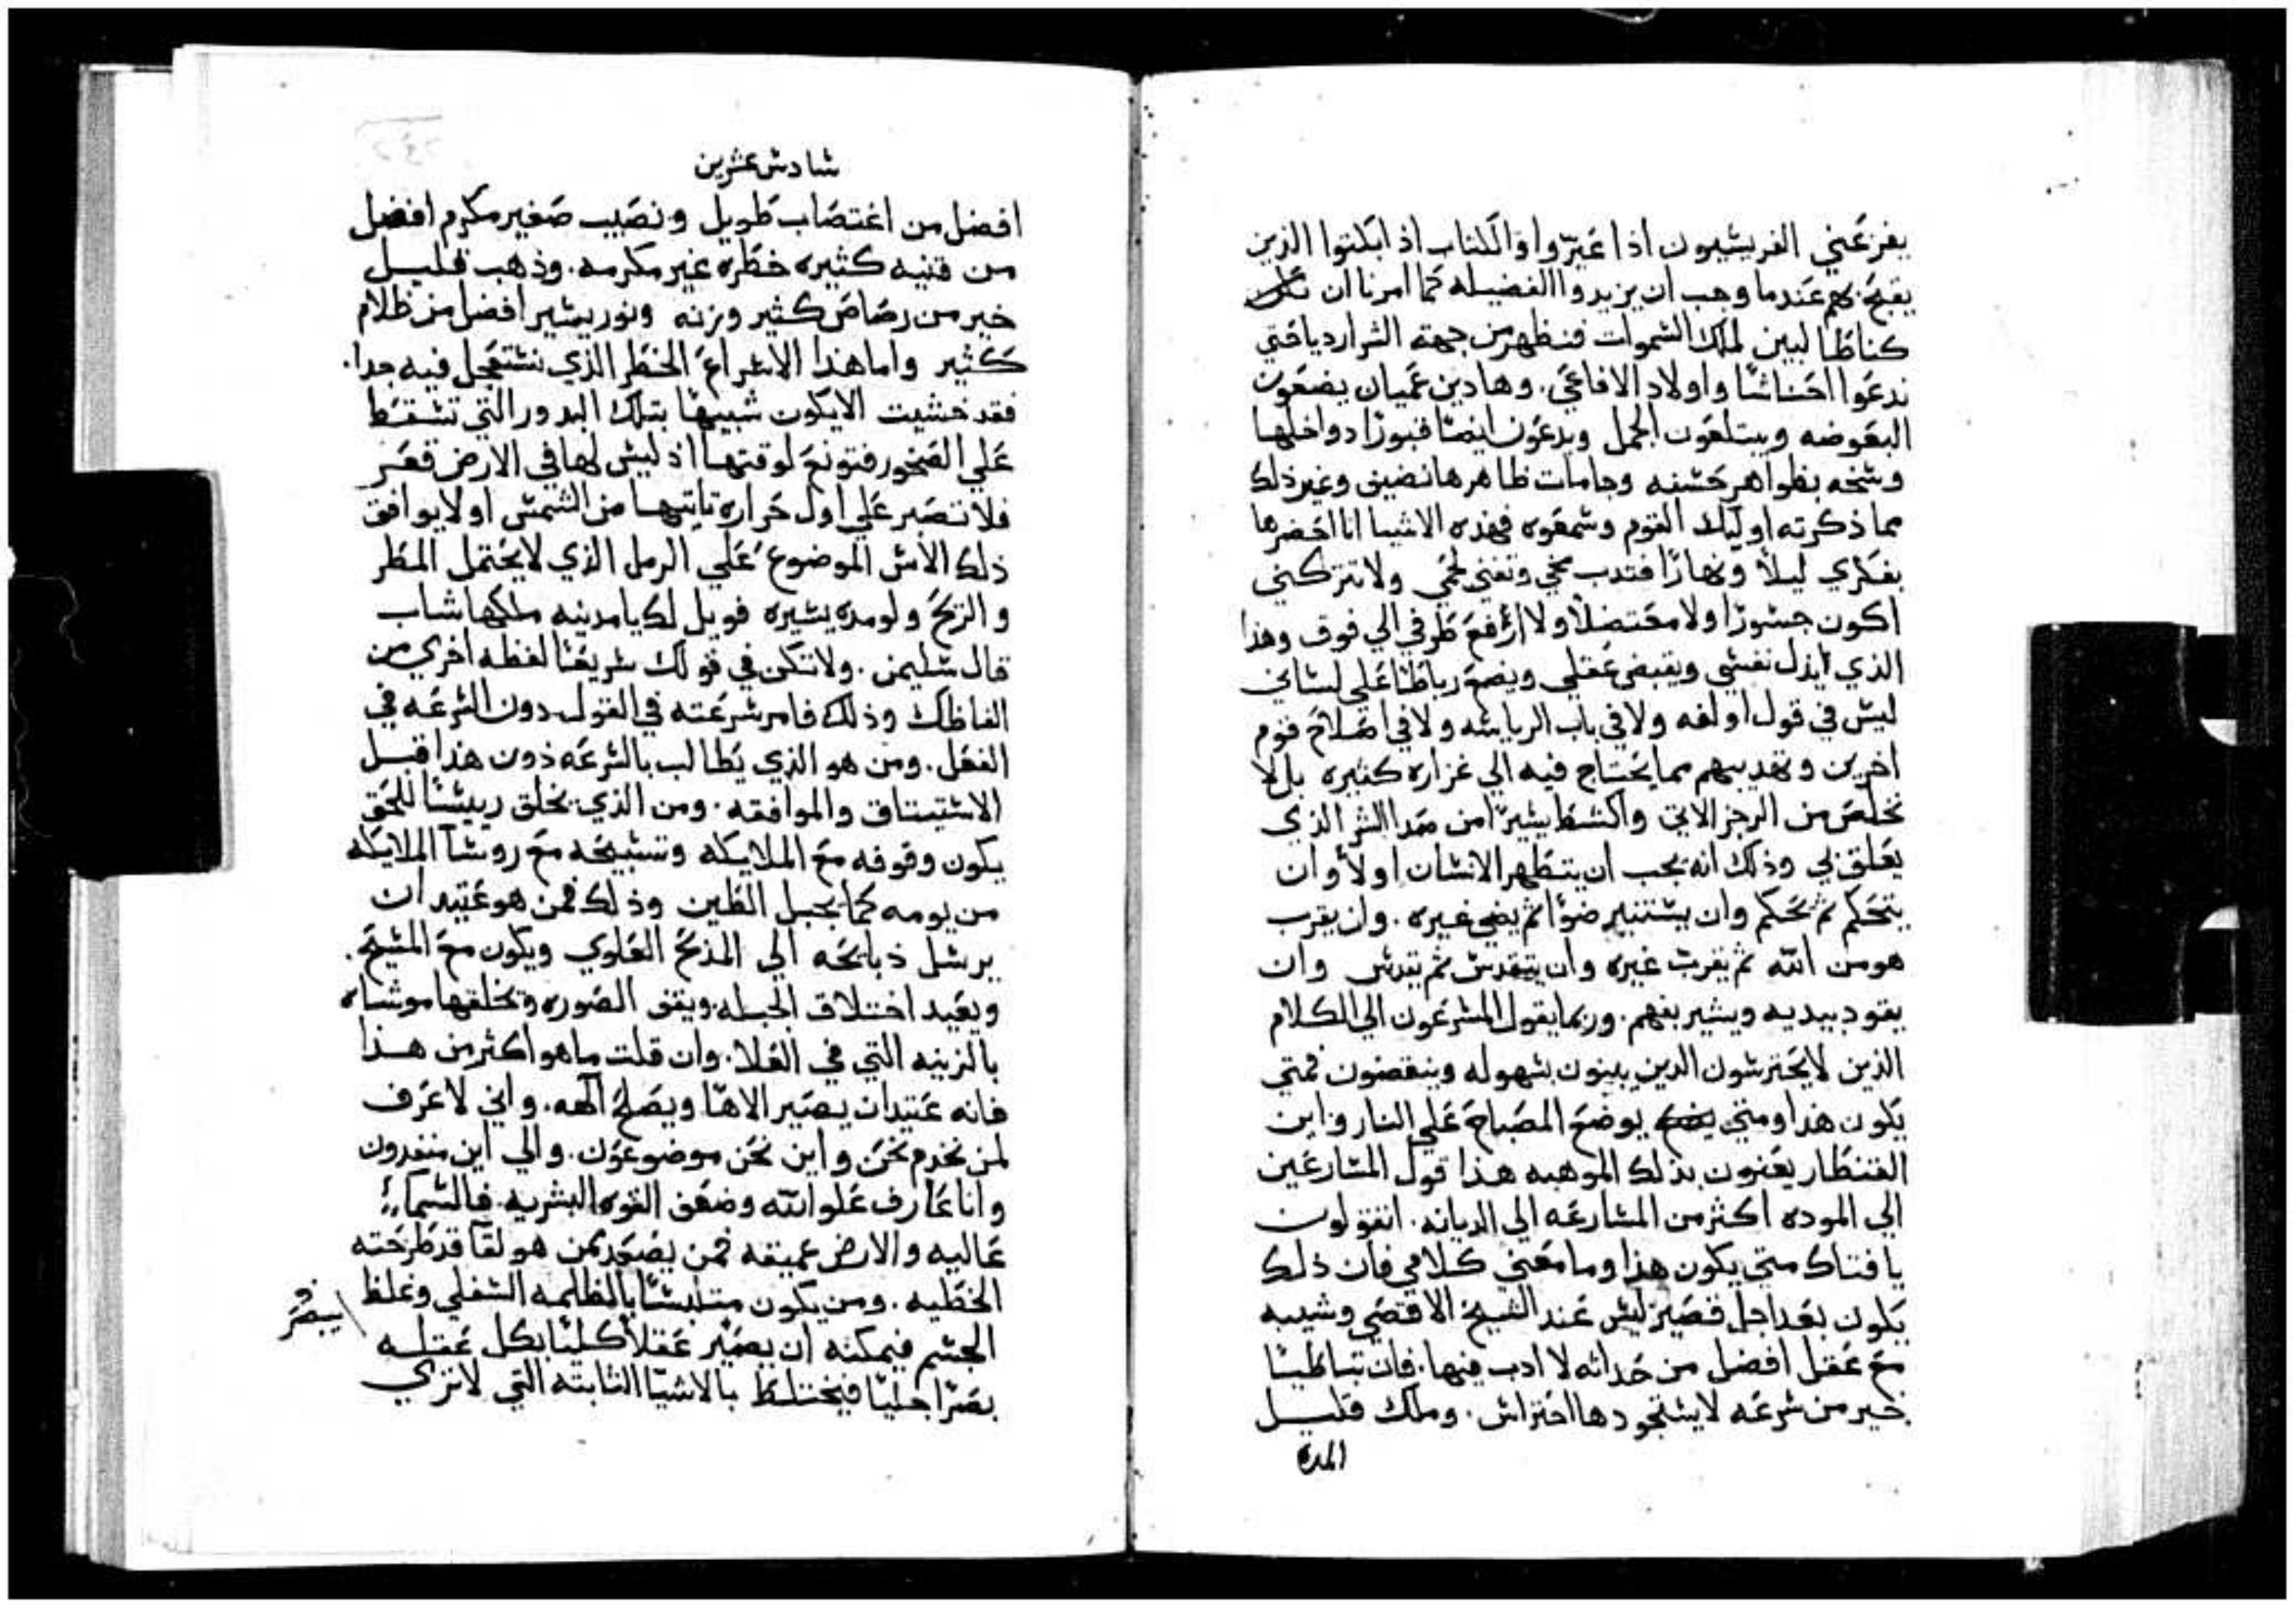 يفزعني الفريسيون اذا عيروا والكتاب اذ ابكتوا الذين
يقبح بهم عندما وجب ان يزيدوا الفضيله كما امرنا ان
كنا طالبين لملك السموات فنظهر من جهة الشر ارديا حتي
ندعوا احناشا واولاد الافاعي. وهادين عميان يضعون
البعوضه ويبتلعون الجمل ويدعون ايضا قبورا دواخلها
وسخه بظواهر حسنه وجامات ظاهرها نضيف وغير ذلك
مما ذكرته اوليك القوم وسمعوه فهذه الاشيا انا احضرها
بفكري ليلا ونهارا فتدب مخي وتفني لحمي ولا تتركني
اكون جسورا ولا مقتضلا ولا ارفع طرفي الي فوق وهذا
الذي يذل نفسي ويقبض عقلي ويضع رباطا علي لساني
ليس في قول اولفه ولا في باب الرياسه ولا في اصلاح قوم
اخرين وتهديبهم مما يحتاج فيه الي غزاره كثيره بل لا
تخلص من الرجز الاتي واكشط يسيرا من صدا الشر الذي
يعلق بي وذلك انه يجب ان يتطهر الانسان اولا وان
يتحكم ثم يحكم وان يستنير ضوا ثم يضي غيره. وان يقرب
هو من الله ثم يقرب غيره وان يتقدس ثم يقدس وان
يقود بيديه ويشير بفهم. وربما يقول المسرعون الي الكلام
الذين لا يحترسون الدين يبنون بسهوله وينقضون فمتي
يكون هذا ومتي يوضع المصباح علي النار واين
القنطار يعنون بذلك الموهبه هذا قول المسارعين
الي الموده اكثر من المسارعه الي الديانه. اتقولون
يا فتاك متي يكون هذا وما معني كلامي فان ذلك
يكون بعد اجل قصير ليس عند الشيخ الاقصي وشيبه
مع عقل افضل من حداثه لا ادب فيها. فان تباطيا
خير من سرعه لا يستجودها احتراس. وملك قليل
المدة
سادس عشرين
افضل من اغتصاب طويل ونصيب صغير مكرم افضل
من قنيه كثيره خطره غير مكرمه. وذهب قليل
خير من رصاص كثير وزنه ونور يسير افضل من ظلام
كثير واما هذا الاسراع الخطر الذي نستعجل فيه جدا.
فقد خشيت الا يكون شبيها بتلك البدور التي تسقط
علي الصخور فتونع لوقتها اذ ليس لها في الارض قعر
فلا تصبر علي اول حراره تاتيها من الشمس او لا يوافق
ذلك الاس الموضوع علي الرمل الذي لا يحتمل المطر
والريح ولو مده يسيره فويل لك يا مدينه ملكها شاب
قال سليمن. ولا تكن في قولك سريعا لفظه اخري من
الفاظك وذلك فامر شرعته في القول دون الشرعه في
الفعل. ومن هو الذي يطالب بالسرعه دون هذا قبل
الاستيتاق والموافقه. ومن الذي يخلق رييسا للحق
يكون وقوفه مع الملايكه وتسبيحه مع روسا الملايكه
من يومه كما يجبل الطين وذلك فمن هو عتيد ان
يرسل ذبايحه الي المذبح العلوي ويكون مع المسيح.
ويعيد اختلاق الجبله ويتقن الصوره ويخلقها موشاه
بالزينه التي في العلا. وان قلت ما هو اكثر من هذا
فانه عتيد ان يصير الاها ويصلح الهه. واني لاعرف
لمن نخدم نحن واين نحن موضوعون. والي اين منفدون
وانا عارف علو الله وضعف القوه البشريه فالسماء
عاليه والارض عميقه فمن يصعد ممن هو لقا قد طرحته
الخطيه. ومن يكون متلبسا بالظلمه السفلي وغلظ
الجسم فيمكنه ان يصير عقلا كليا بكل عقله
يبصر
بصرا جليا فيختلط بالاشيا الثابته التي لا تري